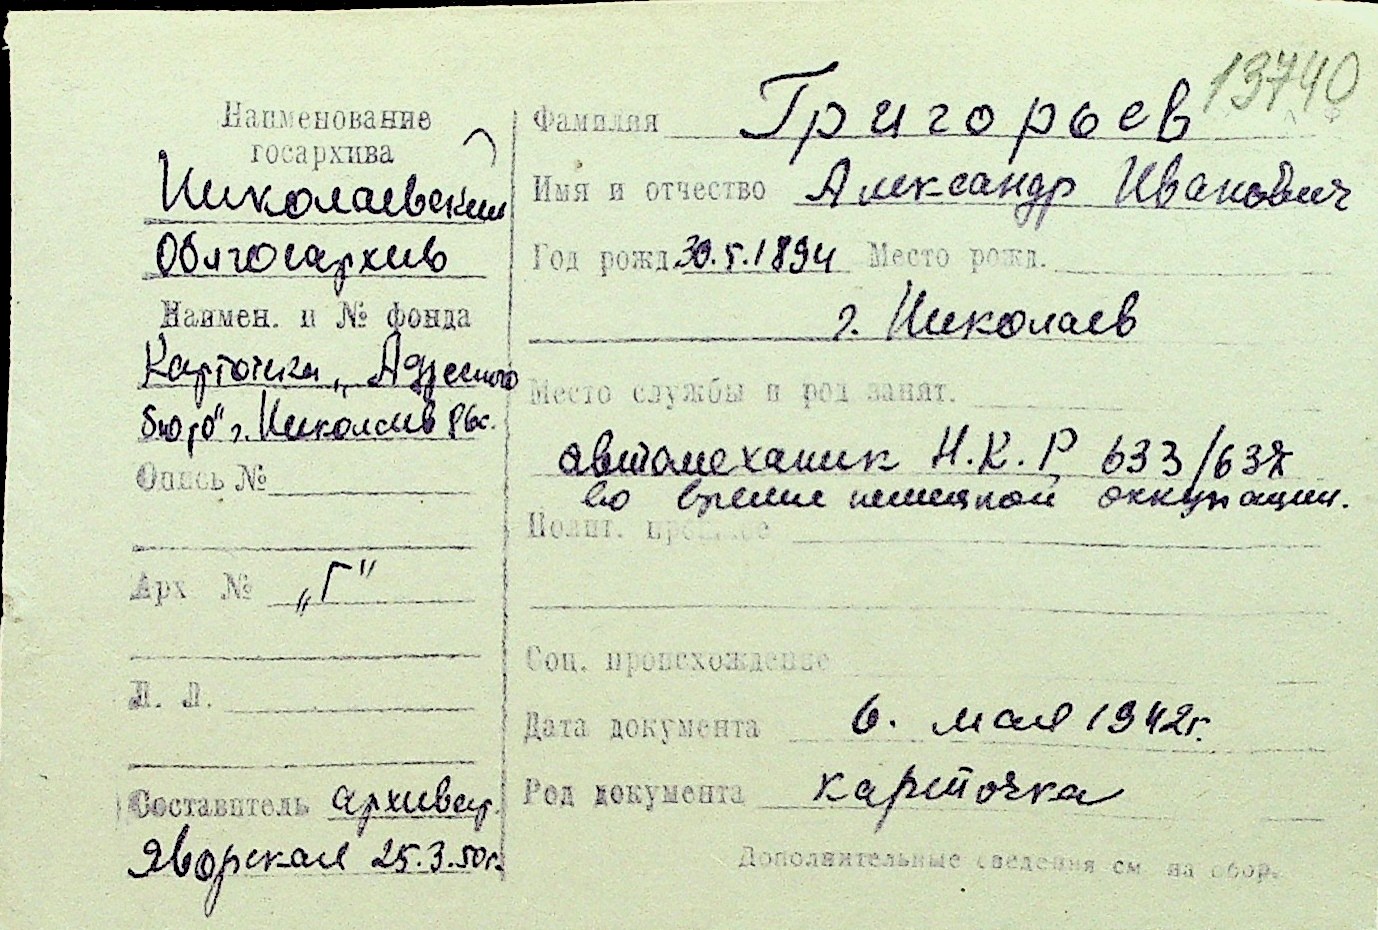 13740
Наименование
госархива
Николаевский
Облгосархив
Наимен. и № фонда
Картотека „Адресного
бюро" г. Николаев
Опись №
Арх №
„Г"
Л. Л.
Составитель архивар.
Яворская 25.3.50г.
Фамилия Григорьев
Имя и отчество Александр Иванович
Год рожд. 30.5.1894 Место рожд.
г. Николаев
Место службы и род занят.
автомеханик Н.К.Р 633/637
во время немецкой оккупации.
Полит. прошлое
Соц. происхождение
Дата документа 6. мая 1942г.
Род документа карточка
Дополнительные сведения см на обор.